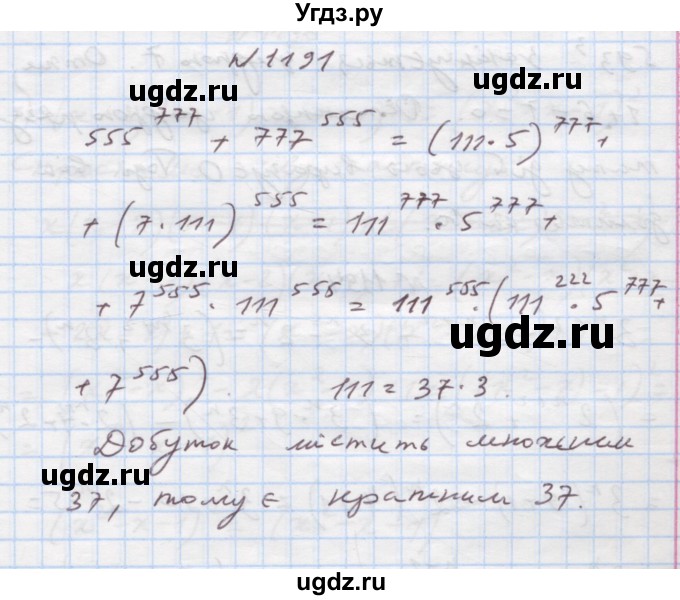 Угдз.ру
№ 1191
ugdz.ru ugdz.ru
555^777 + 777^555 = (111·5)^777 +
+ (7·111)^555 = 111^777 · 5^777 +
ugdz.ru
+ 7^555 · 111^555 = 111^555 · (111^222 · 5^777 +
ugdz.ru
+ 7^555). 111 = 37·3.
Добуток містить множник
ugdz.ru
37, тому є кратним 37.
ugdz.ru